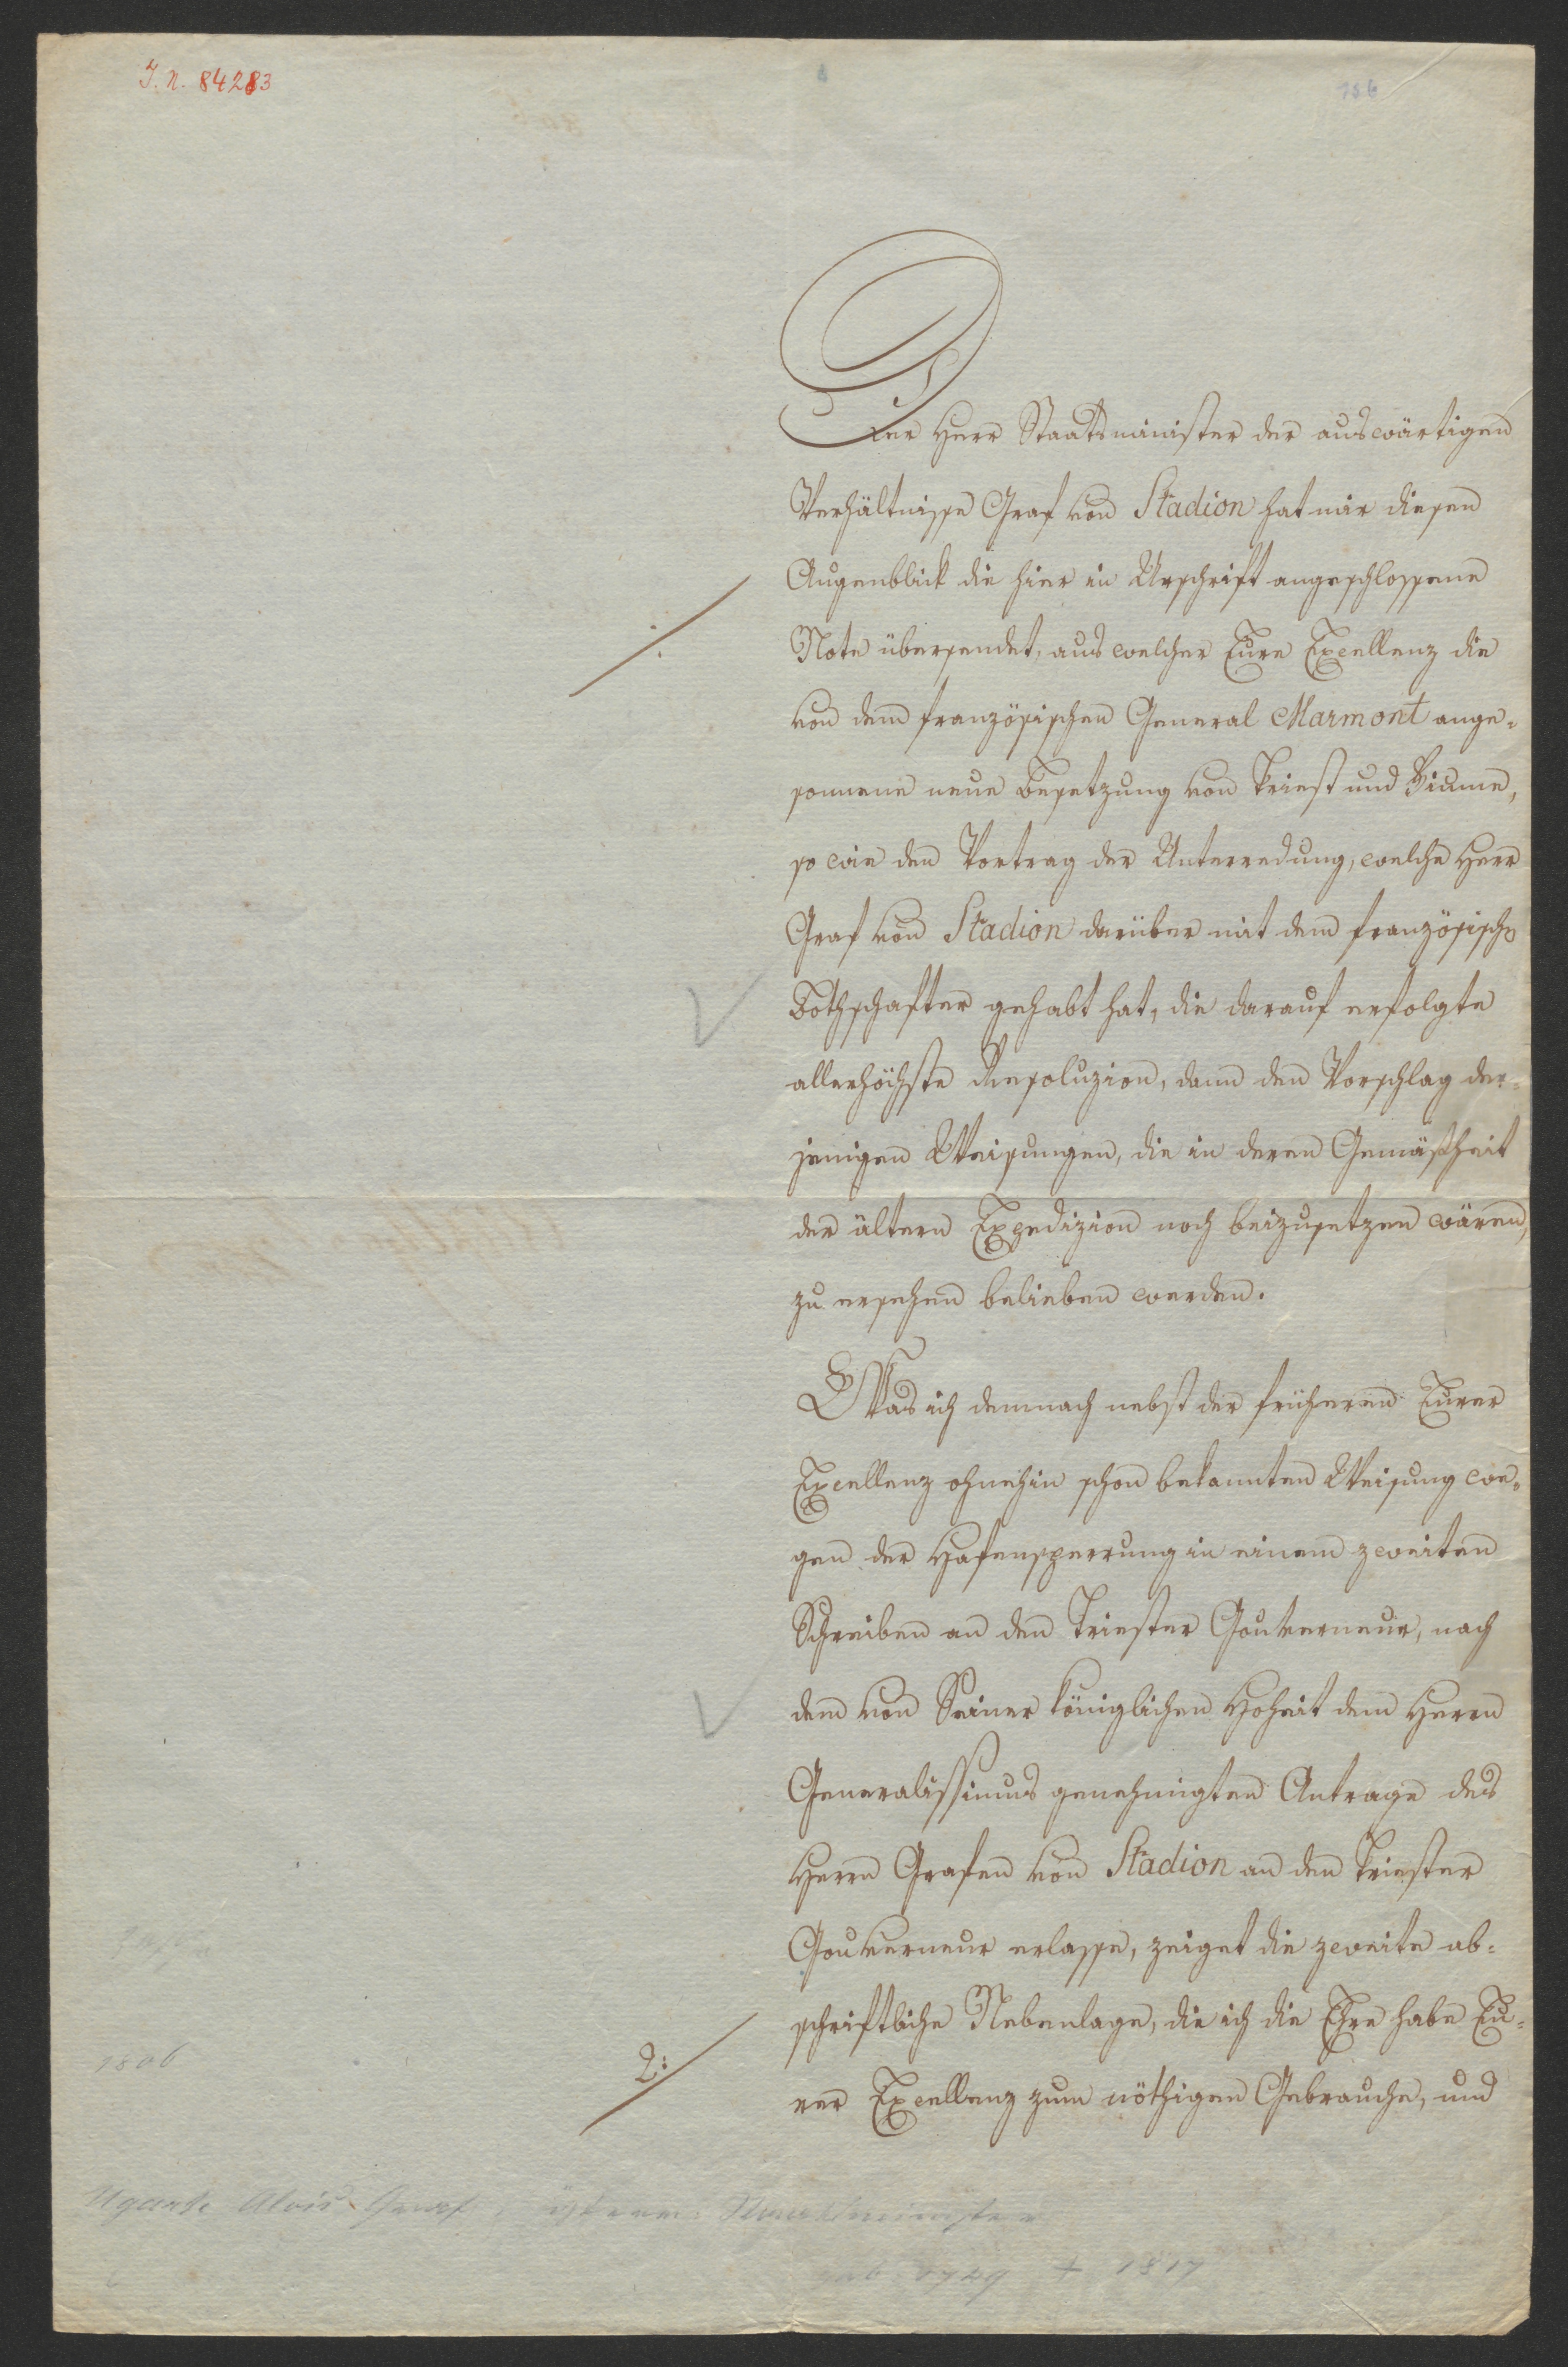 J. N. 84283
156
Der Herr Staatsminister der auswärtigen
Verhältnisse Graf von Stadion hat mir diesen
Augenblick die hier in Urschrift angeschlossene
Note übersendet, aus welcher Eure Excellenz die
von dem französischen General Marmont ange-
sonnene neue Besetzung von Triest und Fiume,
so wie den Vortrag der Unterredung, welche Herr
Graf von Stadion darüber mit dem französischen
Bothschafter gehabt hat, die darauf erfolgte
allerhöchste Resoluzion, dann den Vorschlag der-
jenigen Weisungen, die in deren Gemäßheit
der ältern Expedizion noch beizusetzen wären,
zu ersehen belieben werden.
Was ich demnach nebst der früheren Eurer
Excellenz ohnehin schon bekannten Weisung we-
gen der Hafensperrung in einem zweiten
Schreiben an den Triester Gouverneur, nach
dem von Seiner königlichen Hoheit dem Herrn
Generalissimus genehmigten Antrage des
Herrn Grafen von Stadion an den Triester
Gouverneur erlasse, zeiget die zweite ab-
schriftliche Nebenlage, die ich die Ehre habe Eu-
2./.
rer Excellenz zum nöthigen Gebrauche, und
1806
Ugarte Alois Graf, österr. Staatsminister
geb. 1749 + 1817